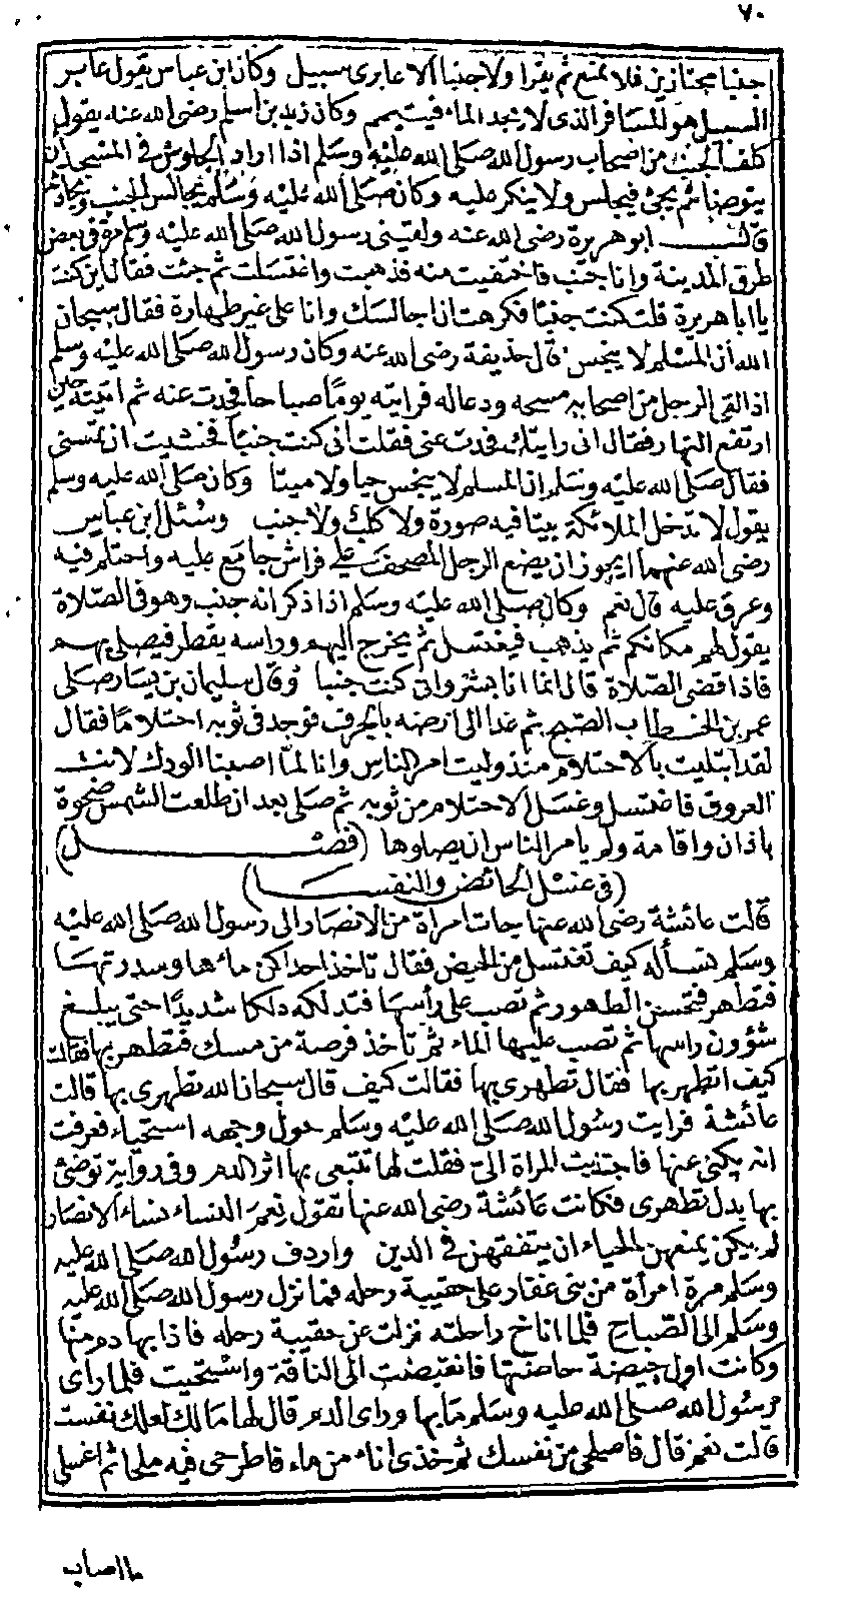 ٧٠
جنبا مجتازين فلا يمنع ثم يقرا ولا جنبا الا عابرى سبيل وكان ابن عباس يقول عابر
السبيل هو المسافر الذى لا يجد الماء فيتيمم وكان زيد بن اسلم رضى الله عنه يقول
كلف الجنب من اصحاب رسول الله صلى الله عليه وسلم اذا اراد الجلوس فى المسجد ان
يتوضا ثم يجئ فيجلس ولا ينكر عليه وكان صلى الله عليه وسلم يجالس الجنب ويحادثه
قالــــ ابو هريرة رضى الله عنه ولقينى رسول الله صلى الله عليه وسلم مرة فى بعض
طرق المدينة وانا جنب فاختفيت منه فذهبت واغتسلت ثم جئت فقال اين كنت
يا ابا هريرة قلت كنت جنبا فكرهت ان اجالسك وانا على غير طهارة فقال سبحان
الله ان المسلم لا ينجس قال حذيفة رضى الله عنه وكان رسول الله صلى الله عليه وسلم
اذا لقى الرجل من اصحابه مسحه ودعا له فرايته يوما صباحا فحدت عنه ثم اتيته حين
ارتفع النهار فقال انى رايتك فحدت عنى فقلت انى كنت جنبا فخشيت ان تمسنى
فقال صلى الله عليه وسلم ان المسلم لا ينجس حيا ولا ميتا وكان صلى الله عليه وسلم
يقول لا تدخل الملائكة بيتا فيه صورة ولا كلب ولا جنب وسئل ابن عباس
رضى الله عنهما ايجوز ان يضع الرجل المصحف على فراش جامع عليه واحتلم فيه
وعرق عليه قال نعم وكان صلى الله عليه وسلم اذا ذكر انه جنب وهو فى الصلاة
يقول لهم مكانكم ثم يذهب فيغتسل ثم يخرج اليهم وراسه يقطر فيصلى بهم
فاذا قضى الصلاة قال انما انا بشر وانى كنت جنبا وقال سليمان بن يسار صلى
عمر بن الخطاب الصبح ثم غدا الى ارضه بالجرف فوجد فى ثوبه احتلاما فقال
لقد ابتليت بالاحتلام منذ وليت امر الناس وانا لما اصبنا الودك لانت
العروق فاغتسل وغسل الاحتلام من ثوبه ثم صلى بعد ان طلعت الشمس ضحوة
باذان واقامة ولم يامر الناس ان يصلوها (فصـــل)
(فى غسل الحائض والنفسا)
قالت عائشة رضى الله عنها جات امرأة من الانصار الى رسول الله صلى الله عليه
وسلم تسأله كيف تغتسل من الحيض فقال تاخذ احداكن ماءها وسدرتها
فتطهر فتحسن الطهور ثم تصب على رأسها فتدلكه دلكا شديدا حتى يبلغ
شؤون راسها ثم تصب عليها الماء ثم تأخذ فرصة من مسك فتطهر بها فقالت
كيف اتطهر بها فقال تطهرى بها فقالت كيف قال سبحان الله تطهرى بها قالت
عائشة فرايت رسول الله صلى الله عليه وسلم حول وجهه استحياء فعرفت
انه يكنى عنها فاجتذبت المراة الىّ فقلت لها تتبعى بها اثر الدم وفى رواية توضئ
بها بدل تطهرى فكانت عائشة رضى الله عنها تقول نعم النساء نساء الانصار
لم يكن يمنعهن الحياء ان يتفقهن فى الدين واردف رسول الله صلى الله عليه
وسلم مرة امرأة من بنى غفار على حقيبة رحله فما نزل رسول الله صلى الله عليه
وسلم الى الصباح فلما اناخ راحلته نزلت عن حقيبة رحله فاذا بها دم منها
وكانت اول حيضة حاضتها فانقبضت الى الناقة واستحيت فلما راى
رسول الله صلى الله عليه وسلم ما بها وراى الدم قال لها مالك لعلك نفست
قالت نعم قال فاصلحى من نفسك ثم خذى اناء من ماء فاطرحى فيه ملحا ثم اغسلى
ما اصاب